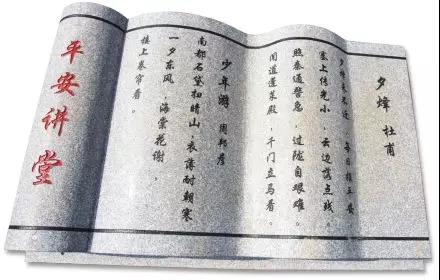 夕烽 杜甫
夕烽来不近，每日报平安
塞上传光小，云边落点残。
照秦通警急，过陇自艰难。
闻道蓬莱殿，千门立马看。
少年游 周邦彦
南都石黛扫晴山，衣薄耐朝寒
一夕东风，海棠花谢，
楼上卷帘看。
平安讲堂